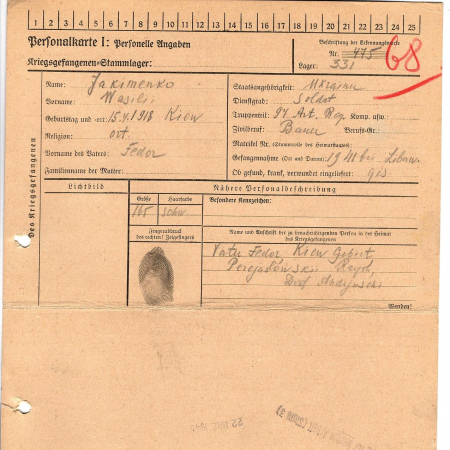 1 2 3 4 5 6 7 8 9 10 11 12 13 14 15 16 17 18 19 20 21 22 23 24 25
Personalkarte I: Personelle Angaben
Beschriftung der Erkennungsmarke
Kriegsgefangenen-Stammlager:
Nr. 475
68
Lager: 331
Des Kriegsgefangenen
Name: Jakimenko
Vorname: Wasilii
Geburtstag und -ort: 15.4.1918 Kiew
Religion: ort.
Vorname des Vaters: Fedor
Familienname der Mutter:
Staatsangehörigkeit: Ukrainer
Dienstgrad: Soldat
Truppenteil: 94 Art. Reg. Komp. usw.
Zivilberuf: Bauer Berufs-Gr.
Matrikel Nr. (Stammrolle des Heimatstaates)
Gefangennahme (Ort und Datum): 1941 bei
Ob gesund, krank, verwundet eingeliefert: ges.
Lichtbild
Nähere Personalbeschreibung
Größe Haarfarbe
Besondere Kennzeichen:
165 schw.
Fingerabdruck
des rechten! Zeigefingers
Name und Anschrift der zu benachrichtigenden Person in der Heimat
des Kriegsgefangenen
Vater Fedor, Kiew Gebiet
Rayon,
Dorf
Wenden!